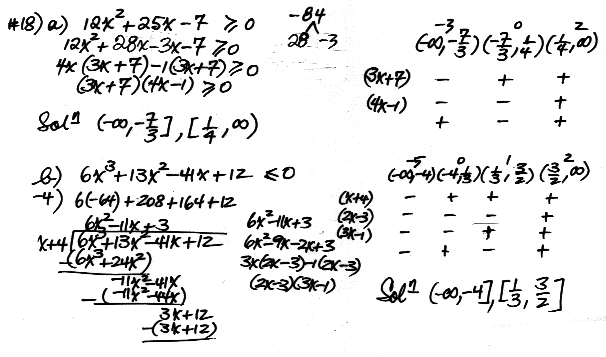 #18) a) 12x² + 25x - 7 ≥ 0
12x² + 28x - 3x - 7 ≥ 0
4x(3x+7) - 1(3x+7) ≥ 0
(3x+7)(4x-1) ≥ 0
Sol'n (-∞, -7/3], [1/4, ∞)
-84
28 -3
-3 0 2
(-∞, -7/3) (-7/3, 1/4) (1/4, ∞)
(3x+7) - + +
(4x-1) - - +
+ - +
b) 6x³ + 13x² - 41x + 12 ≤ 0
-4) 6(-64) + 208 + 164 + 12
6x² - 11x + 3
x+4 6x³ + 13x² - 41x + 12
-(6x³ + 24x²)
-11x² - 41x
-(-11x² - 44x)
3x + 12
-(3x + 12)
6x² - 11x + 3
6x² - 9x - 2x + 3
3x(2x-3) - 1(2x-3)
(2x-3)(3x-1)
-5 0 1 2
(-∞, -4) (-4, 1/3) (1/3, 3/2) (3/2, ∞)
(x+4) - + + +
(2x-3) - - - +
(3x-1) - - + +
- + - +
Sol'n (-∞, -4], [1/3, 3/2]